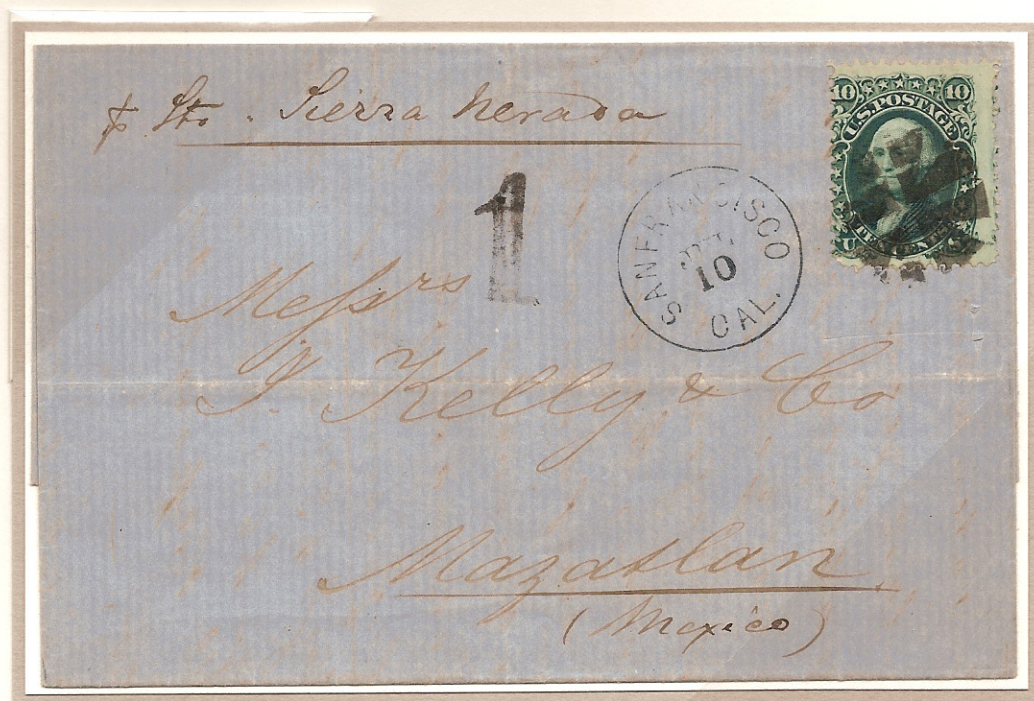 p Str. Sierra Nevada
10 10
U.S. POSTAGE
TEN CENTS
U S
1
SAN FRANCISCO
10
CAL.
Messrs
J. Kelly & Co
Mazatlan
(Mexico)